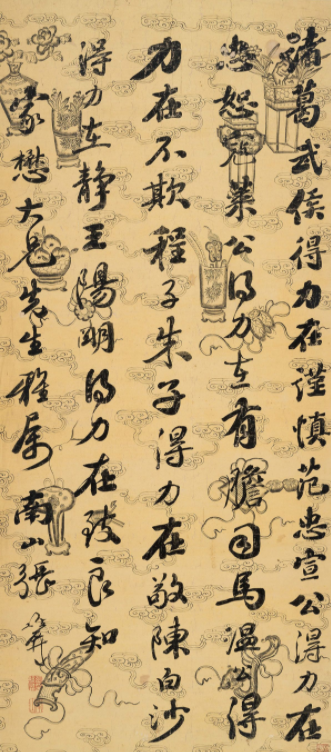 諸葛武侯得力在謹慎范忠宣公得力在
忠恕寇萊公得力在有膽司馬温公得
力在不欺程子朱子得力在敬陳白沙
得力在静王陽明得力在致良知
蒙懋大兄先生雅属 南山張